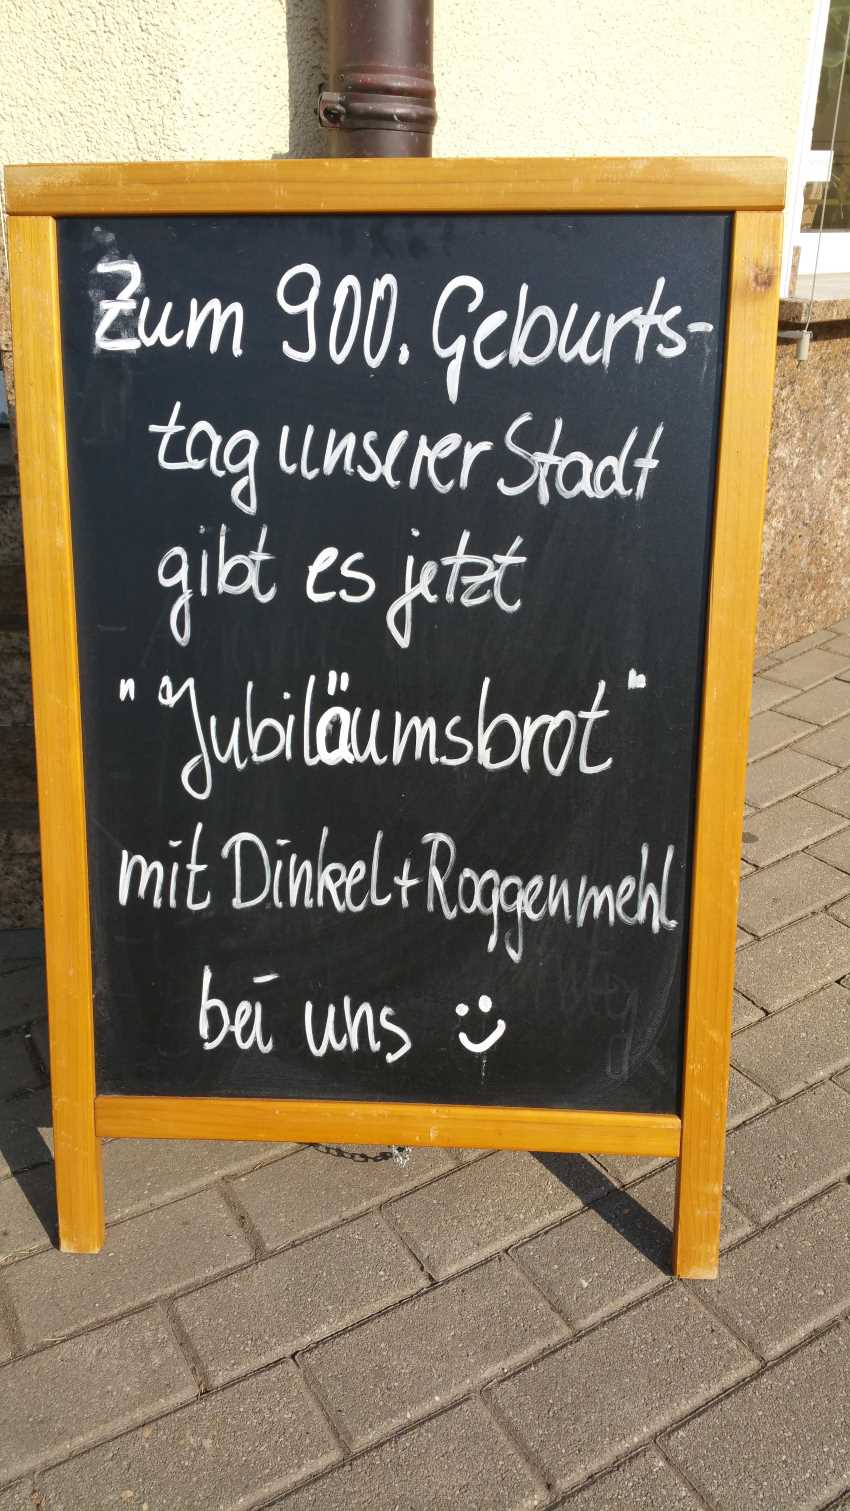 Zum 900. Geburts-
tag unserer Stadt
gibt es jetzt
"Jubiläumsbrot"
mit Dinkel+Roggenmehl
bei uns